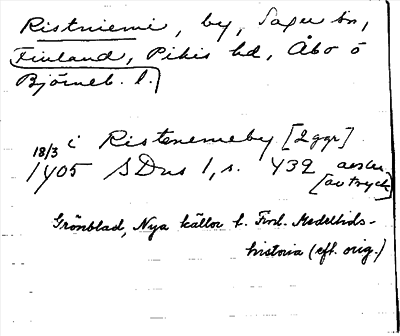 Ristniemi, by, Sagu sn,
Finland, Pikis hd, Åbo o
Björneb. l.
18/3 i Ristenemeby [2 ggr]
1405 SDns 1, s. 439
[avtryck]
Grönblad, Nya källor t. Finl. Medeltids-
historia (eft. orig.)